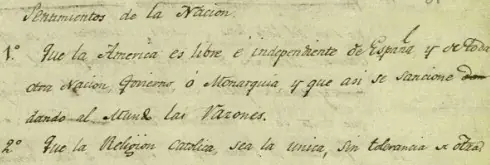 Sentimientos de la Nacion.
1.º Que la America es libre é independiente de España y de toda
otra Nacion, Govierno, ó Monarquia, y que asi se sancione
dando al Mundo las Razones.
2.º Que la Religion Catolica, sea la unica, sin tolerancia de otra